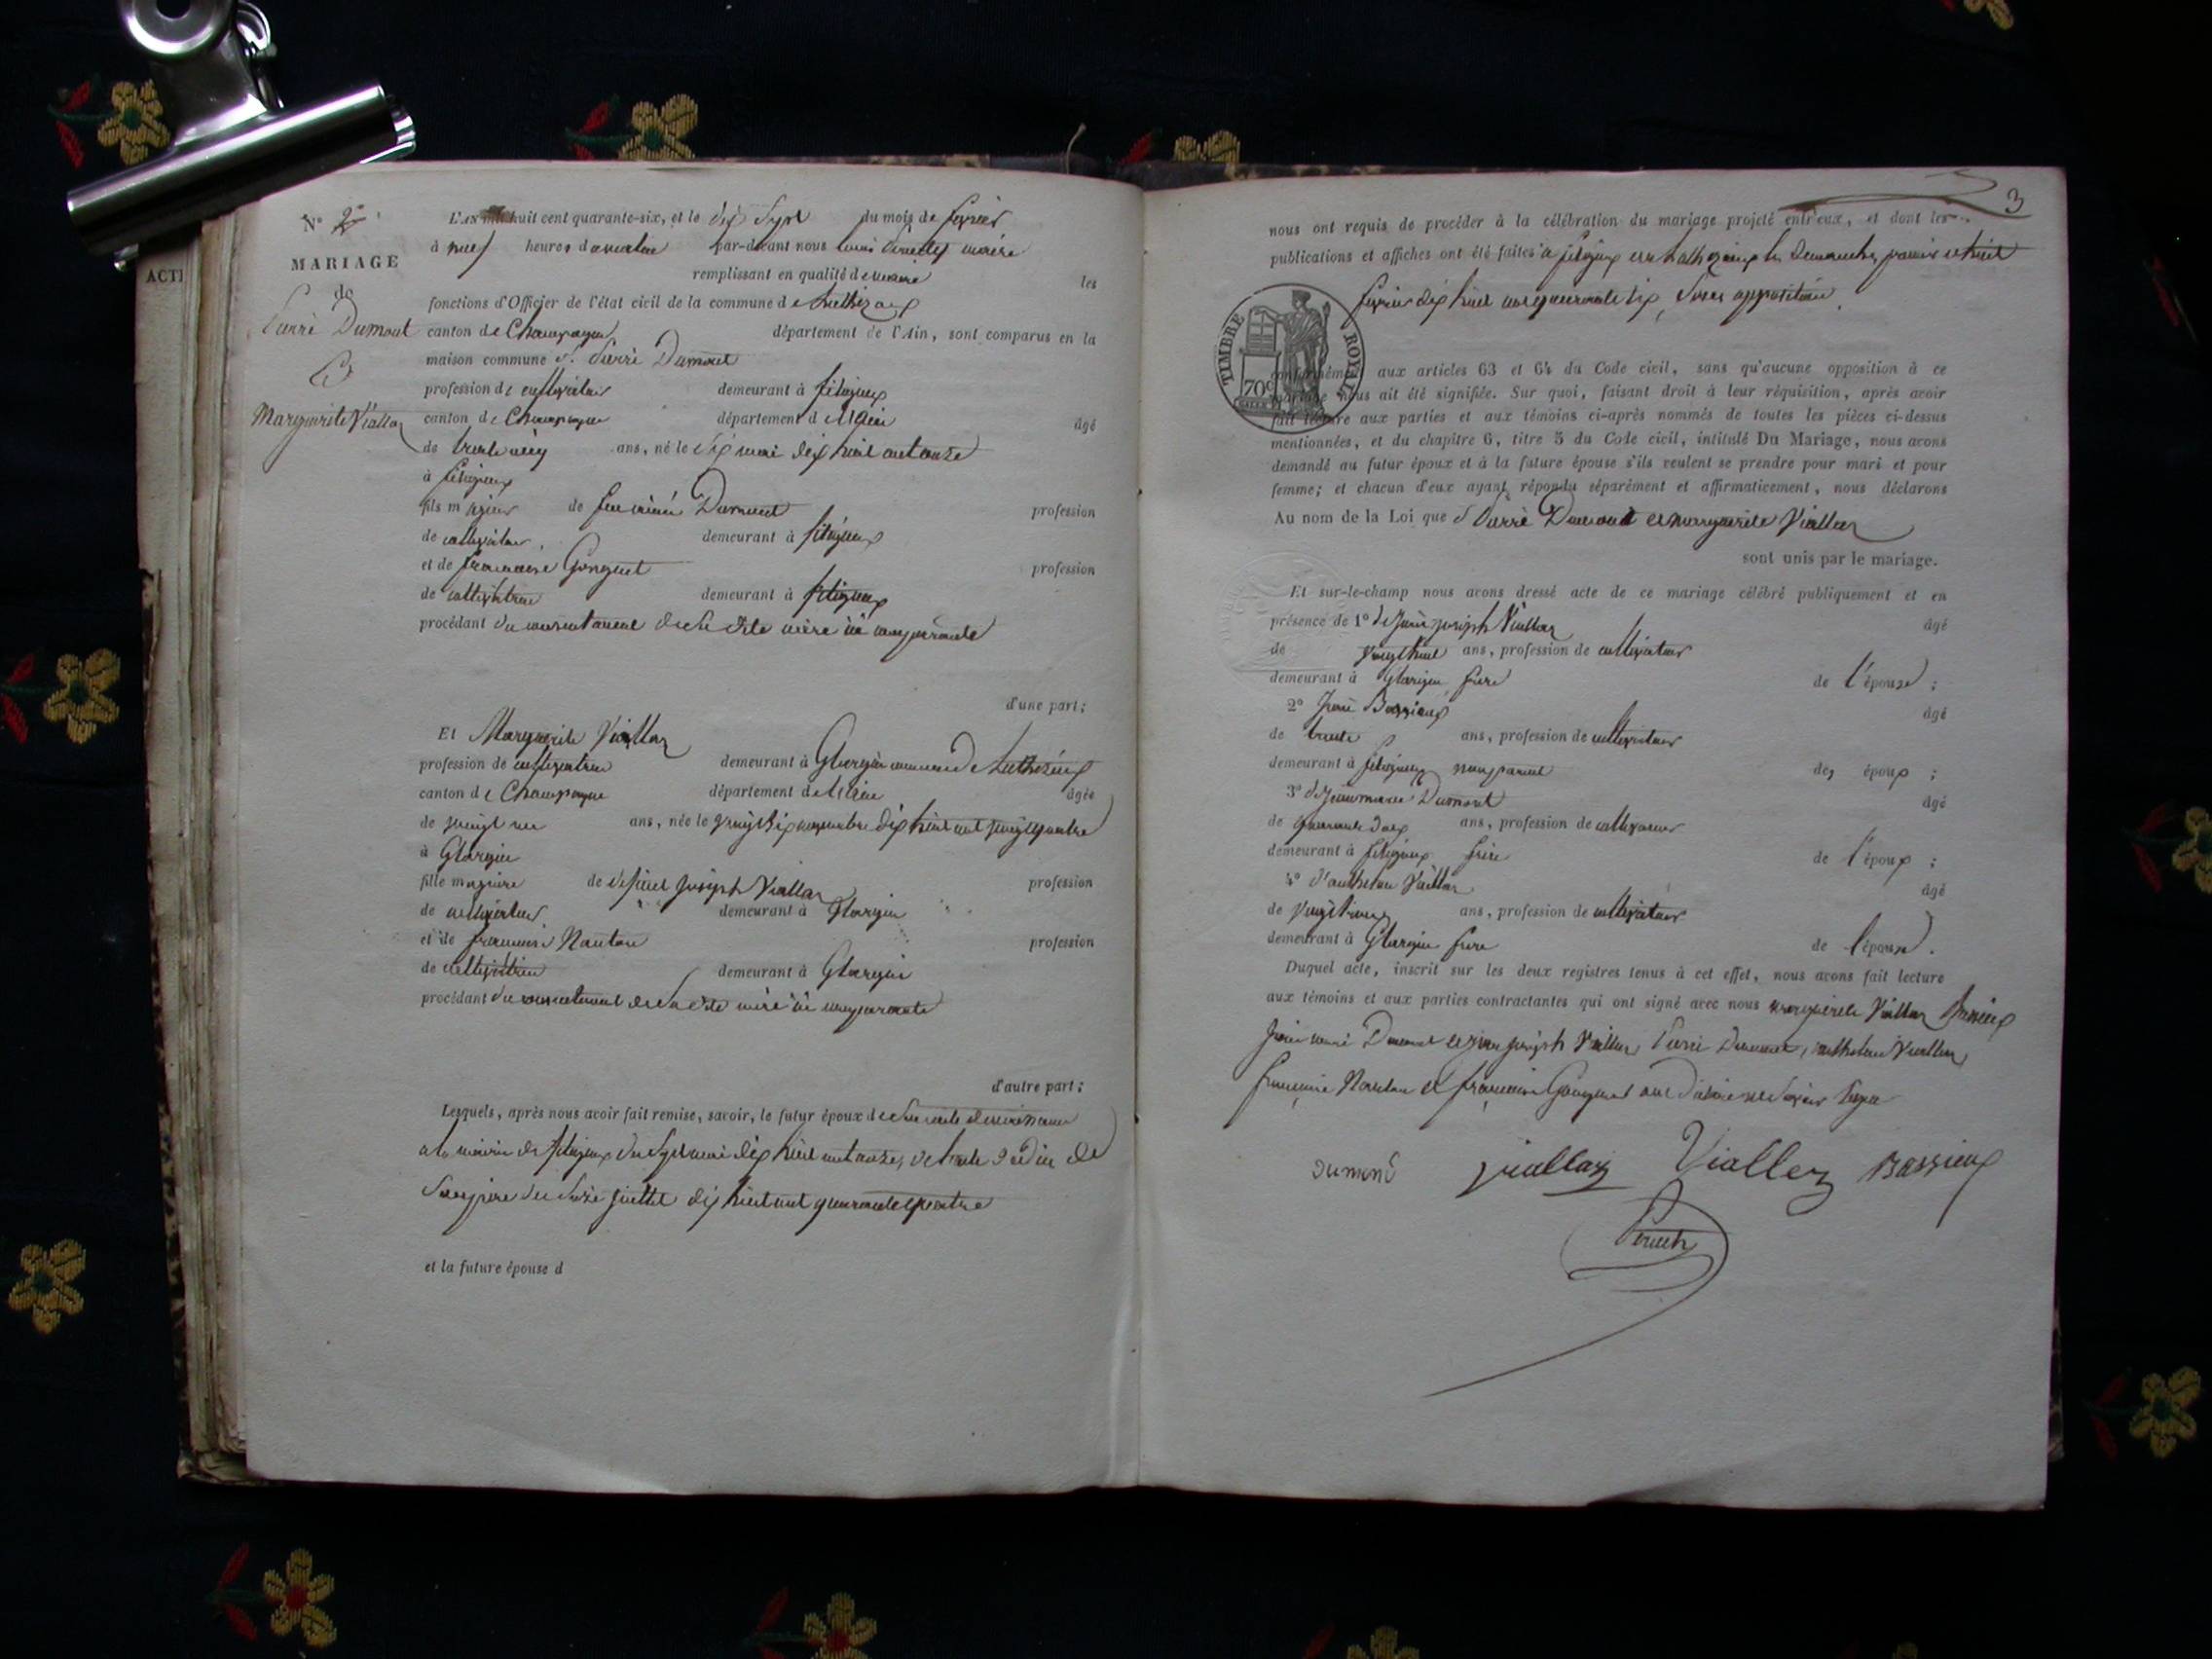 N° 2e
MARIAGE
de
Pierre Dumont
Et
Marguerite Viallaz
ACTI
L'an mil huit cent quarante-six, et le dix Sept du mois de fevrier
à neuf heures du matin par-devant nous Louis maire
remplissant en qualité de maire les
fonctions d'Officier de l'état civil de la commune de Luthézieux
canton de Champagne département de l'Ain, sont comparus en la
maison commune Sr. Pierre Dumont
profession de cultivateur demeurant à fitigneux
canton de Champagne département de l'Ain âgé
de trente cinq ans, né le Six mai dix huit cent onze
à fitigneux
fils majeur de feu Dumont profession
de cultivateur demeurant à fitigneux
et de francoise Gonguet profession
de cultivatrice demeurant à fitigneux
procédant du consentement de sa dite mère ici comparante
d'une part;
Et Marguerite Viallaz
profession de cultivatrice demeurant à Glargin commune de Luthézieux
canton de Champagne département de l'Ain âgée
de vingt un ans, née le vingt Six novembre dix huit cent vingt quatre
à Glargin
fille majeure de défunt Joseph Viallaz profession
de cultivateur demeurant à Glargin
et de francoise Nanton profession
de cultivatrice demeurant à Glargin
procédant du consentement de sa dite mère ici comparante
d'autre part;
Lesquels, après nous avoir fait remise, savoir, le futur époux de Son acte de naissance
a la mairie de fitigneux du Sept mai dix huit cent onze, de acte de
Son père du juillet dix huit cent quarante quatre
et la future épouse d
3
nous ont requis de procéder à la célébration du mariage projeté entr'eux, et dont les
publications et affiches ont été faites à fitigneux et a Luthézieux les Dimanches premier et huit
fevrier dix huit cent quarante Six, Sans opposition
TIMBRE ROYAL
70c
conformément aux articles 63 et 64 du Code civil, sans qu'aucune opposition à ce
mariage nous ait été signifiée. Sur quoi, faisant droit à leur réquisition, après avoir
fait lecture aux parties et aux témoins ci-après nommés de toutes les pièces ci-dessus
mentionnées, et du chapitre 6, titre 5 du Code civil, intitulé Du Mariage, nous avons
demandé au futur époux et à la future épouse s'ils veulent se prendre pour mari et pour
femme; et chacun d'eux ayant répondu séparément et affirmativement, nous déclarons
Au nom de la Loi que Pierre Dumont et marguerite Viallaz
sont unis par le mariage.
Et sur-le-champ nous avons dressé acte de ce mariage célébré publiquement et en
présence de 1° de Jean joseph Viallaz âgé
de vingt huit ans, profession de cultivateur
demeurant à Glargin, frere de l'épouse;
2° Bassieux âgé
de trente ans, profession de cultivateur
demeurant à fitigneux non parent des époux;
3° de Jean marie Dumont âgé
de quarante deux ans, profession de cultivateur
demeurant à fitigneux frère de l'époux;
4° d'anthelme Viallaz âgé
de vingt ans, profession de cultivateur
demeurant à Glargin frere de l'épouse.
Duquel acte, inscrit sur les deux registres tenus à cet effet, nous avons fait lecture
aux témoins et aux parties contractantes qui ont signé avec nous marguerite Viallaz Bassieux
Jean marie Dumont et jean joseph Viallaz Pierre Dumont, anthelme Viallaz
françoise Nanton et françoise Gonguet ont
Dumont Viallaz Viallez Bassieux